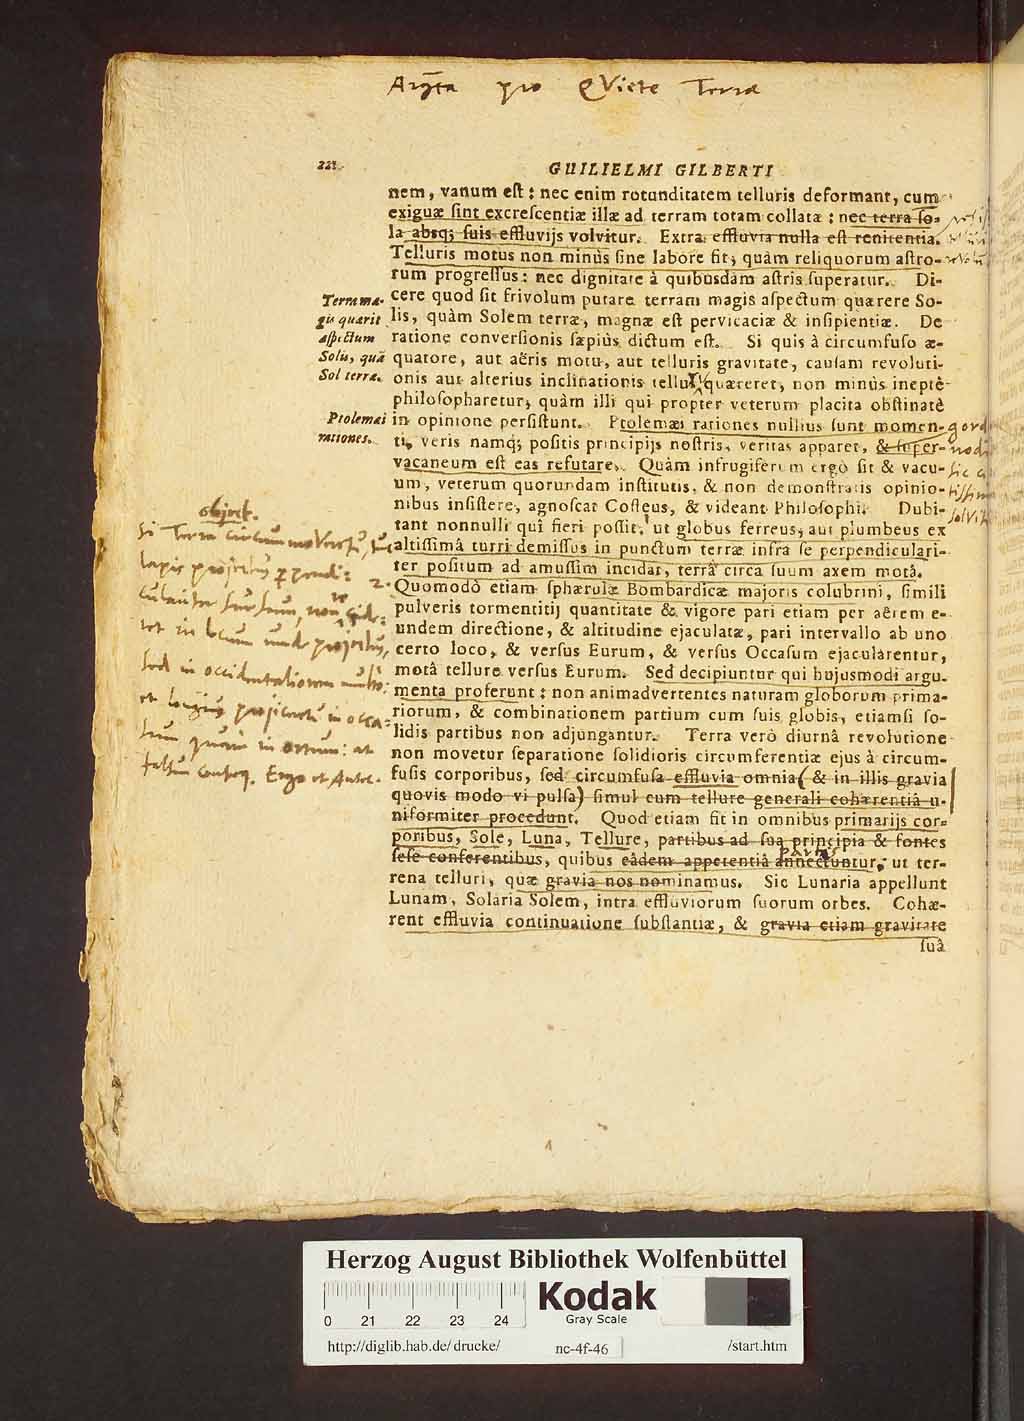 pro QViete Terræ
221.
GUILIELMI GILBERTI
nem, vanum eſt: nec enim rotunditatem telluris deformant, cum
exiguæ ſint excreſcentiæ illæ ad terram totam collatæ: nec terra ſo-
la absq; ſuis effluvijs volvitur. Extra effluvia nulla eſt renitentia.
Telluris motus non minùs ſine labore fit, quàm reliquorum aſtro-
rum progreſſus: nec dignitate à quibusdam aſtris ſuperatur. Di-
cere quod ſit frivolum putare terram magis aſpectum quærere So-
lis, quàm Solem terræ, magnæ eſt pervicaciæ & inſipientiæ. De
ratione converſionis ſæpiùs dictum eſt. Si quis à circumfuſo æ-
quatore, aut aëris motu, aut telluris gravitate, cauſam revoluti-
onis aut alterius inclinationis quæreret, non minùs ineptè
philoſopharetur, quàm illi qui propter veterum placita obſtinatè
in opinione perſiſtunt. Ptolemæi rationes nullius ſunt momen-
ti, veris namq; poſitis principijs noſtris, veritas apparet, & ſuper-
vacaneum eſt eas refutare. Quàm infrugiferum ergò ſit & vacu-
um, veterum quorundam inſtitutis, & non demonſtratis opinio-
nibus inſiſtere, agnoſcat Coſteus, & videant Philoſophi. Dubi-
tant nonnulli quî fieri poſſit, ut globus ferreus, aut plumbeus ex
altiſſimâ turri demiſſus in punctum terræ infra ſe perpendiculari-
ter poſitum ad amuſſim incidat, terrâ circa ſuum axem motâ.
2.
Quomodò etiam ſphærulæ Bombardicæ majoris colubrini, ſimili
pulveris tormentitij quantitate & vigore pari etiam per aërem e-
undem directione, & altitudine ejaculatæ, pari intervallo ab uno
certo loco, & verſus Eurum, & verſus Occaſum ejacularentur,
motâ tellure verſus Eurum. Sed decipiuntur qui hujusmodi argu-
menta proferunt: non animadvertentes naturam globorum prima-
riorum, & combinationem partium cum ſuis globis, etiamſi ſo-
lidis partibus non adjungantur. Terra verò diurnâ revolutione
non movetur ſeparatione ſolidioris circumferentiæ ejus à circum-
fuſis corporibus, ſed circumfuſa effluvia omnia (& in illis gravia
quovis modo vi pulſa) ſimul cum tellure generali cohærentiâ u-
niformiter procedunt. Quod etiam fit in omnibus primarijs cor-
poribus, Sole, Luna, Tellure, partibus ad ſua principia & fontes
ſeſe conferentibus, quibus eâdem appetentiâ annectuntur, ut ter-
rena telluri, quæ gravia nos nominamus. Sic Lunaria appellunt
Lunam, Solaria Solem, intra effluviorum ſuorum orbes. Cohæ-
rent effluvia continuatione ſubſtantiæ, & gravia etiam gravitate
ſuâ
Terram ma-
gis quærit
aſpectum
Solis, quā
Sol terræ.
Ptolemæi
rationes.
object.
Herzog August Bibliothek Wolfenbüttel
0 21 22 23 24
Kodak
Gray Scale
http://diglib.hab.de/drucke/
nc-4f-46
/start.htm